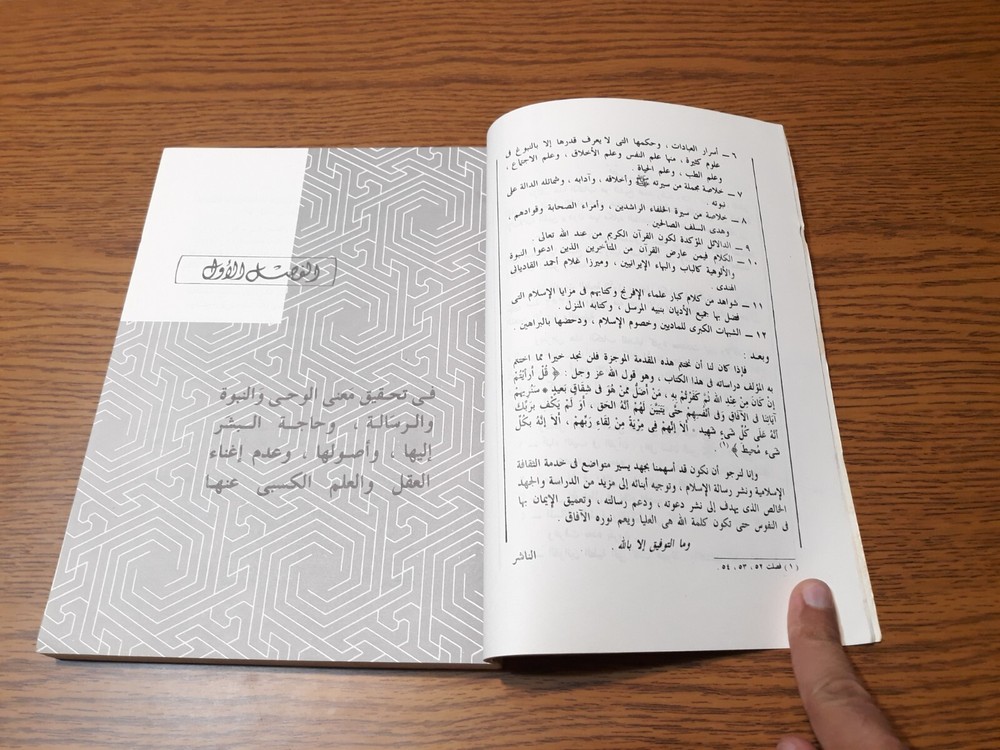 ٦ ــ أسرار العبادات ، وحكمها التى لا يعرف قدرها إلا بالنبوغ فى
علوم كثيرة ، منها علم النفس وعلم الأخلاق ، وعلم الاجتماع ،
وعلم الطب ، وعلم الحياة .
٧ ــ خلاصة مجملة من سيرته ﷺ وأخلاقه ، وآدابه ، وشمائله الدالة على
نبوته .
٨ ــ خلاصة من سيرة الخلفاء الراشدين ، وأمراء الصحابة وقوادهم ،
وهدى السلف الصالحين .
٩ ــ الدلائل المؤكدة لكون القرآن الكريم من عند الله تعالى .
١٠ ــ الكلام فيمن عارض القرآن من المتأخرين الذين ادعوا النبوة
والألوهية كالباب والبهاء الإيرانيين ، وميرزا غلام أحمد القاديانى
الهندى .
١١ ــ شواهد من كلام كبار علماء الإفرنج وكتابهم فى مزايا الإسلام التى
فضل بها جميع الأديان بنبيه المرسل ، وكتابه المنزل .
١٢ ــ الشبهات الكبرى للماديين وخصوم الإسلام ، ودحضها بالبراهين .
وبعد :
فإذا كان لنا أن نختم هذه المقدمة الموجزة فلن نجد خيرا مما اختتم
به المؤلف دراساته فى هذا الكتاب ، وهو قول الله عز وجل : ﴿ قُلْ أَرَأَيْتُمْ
إِنْ كَانَ مِنْ عِنْدِ اللهِ ثُمَّ كَفَرْتُمْ بِهِ ، مَنْ أَضَلُّ مِمَّنْ هُوَ فِى شِقَاقٍ بَعِيدٍ * سَنُرِيهِمْ
آيَاتِنَا فِى الْآفَاقِ وَفِى أَنْفُسِهِمْ حَتَّى يَتَبَيَّنَ لَهُمْ أَنَّهُ الْحَقُّ ، أَوَ لَمْ يَكْفِ بِرَبِّكَ
أَنَّهُ عَلَى كُلِّ شَىْءٍ شَهِيدٌ . أَلَا إِنَّهُمْ فِى مِرْيَةٍ مِنْ لِقَاءِ رَبِّهِمْ ، أَلَا إِنَّهُ بِكُلِّ
شَىْءٍ مُحِيطٌ ﴾ (١) .
وإنا لنرجو أن نكون قد أسهمنا بجهد يسير متواضع فى خدمة الثقافة
الإسلامية ونشر رسالة الإسلام ، وتوجيه أبنائه إلى مزيد من الدراسة والجهد
الخالص الذى يهدف إلى نشر دعوته ، ودعم رسالته ، وتعميق الإيمان بها
فى النفوس حتى تكون كلمة الله هى العليا ويعم نوره الآفاق .
وما التوفيق إلا بالله .
الناشر
(١) فصلت ٥٢ ، ٥٣ ، ٥٤ .
الفصل الأول
فى تحقيق معنى الوحى والنبوة
والرسالة ، وحاجة البشر
إليها ، وأصولها ، وعدم إغناء
العقل والعلم الكسبى عنها